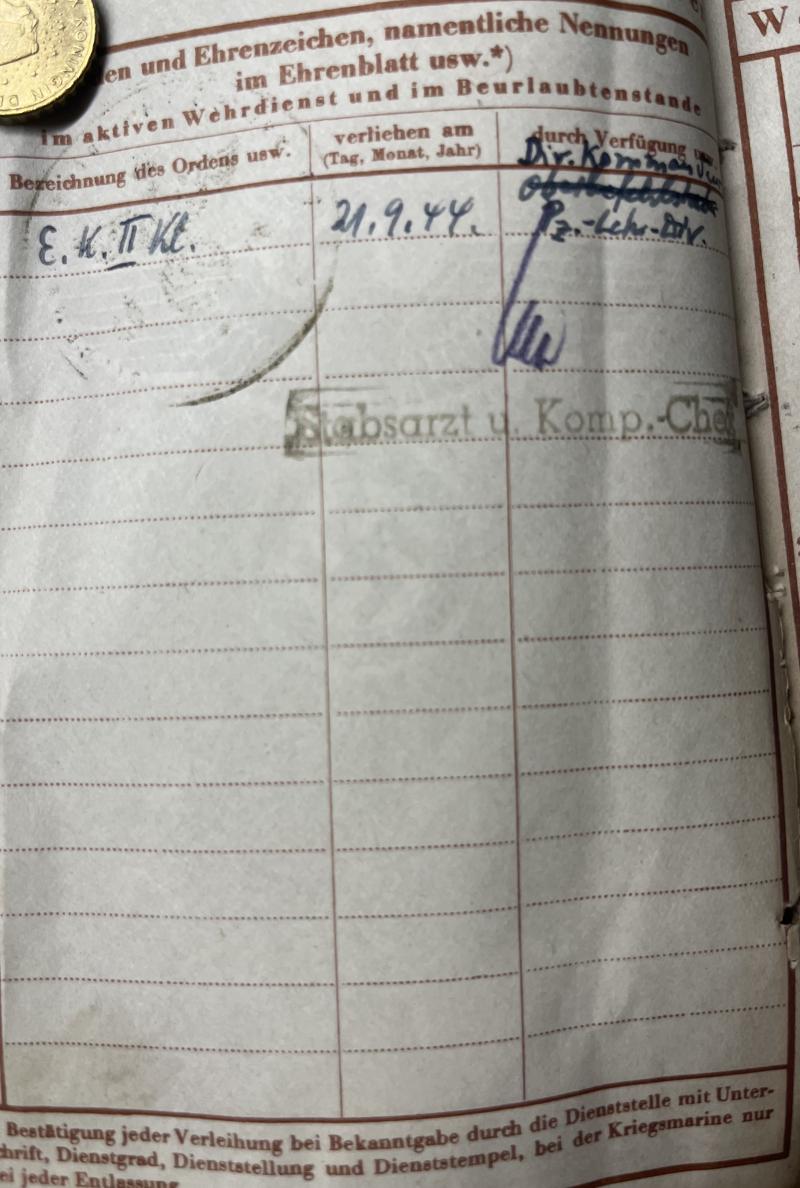 en und Ehrenzeichen, namentliche Nennungen
im Ehrenblatt usw.*)
im aktiven Wehrdienst und im Beurlaubtenstande
Bezeichnung des Ordens usw.
verliehen am
(Tag, Monat, Jahr)
durch Verfügung
E. K. II Kl.
21. 9. 44.
Div. Kommandeur
Pz.-Lehr-Div.
Stabsarzt u. Komp.-Chef
Bestätigung jeder Verleihung bei Bekanntgabe durch die Dienststelle mit Unter-
chrift, Dienstgrad, Dienststellung und Dienststempel, bei der Kriegsmarine nur
ei jeder Entlassung
W
KONINGIN